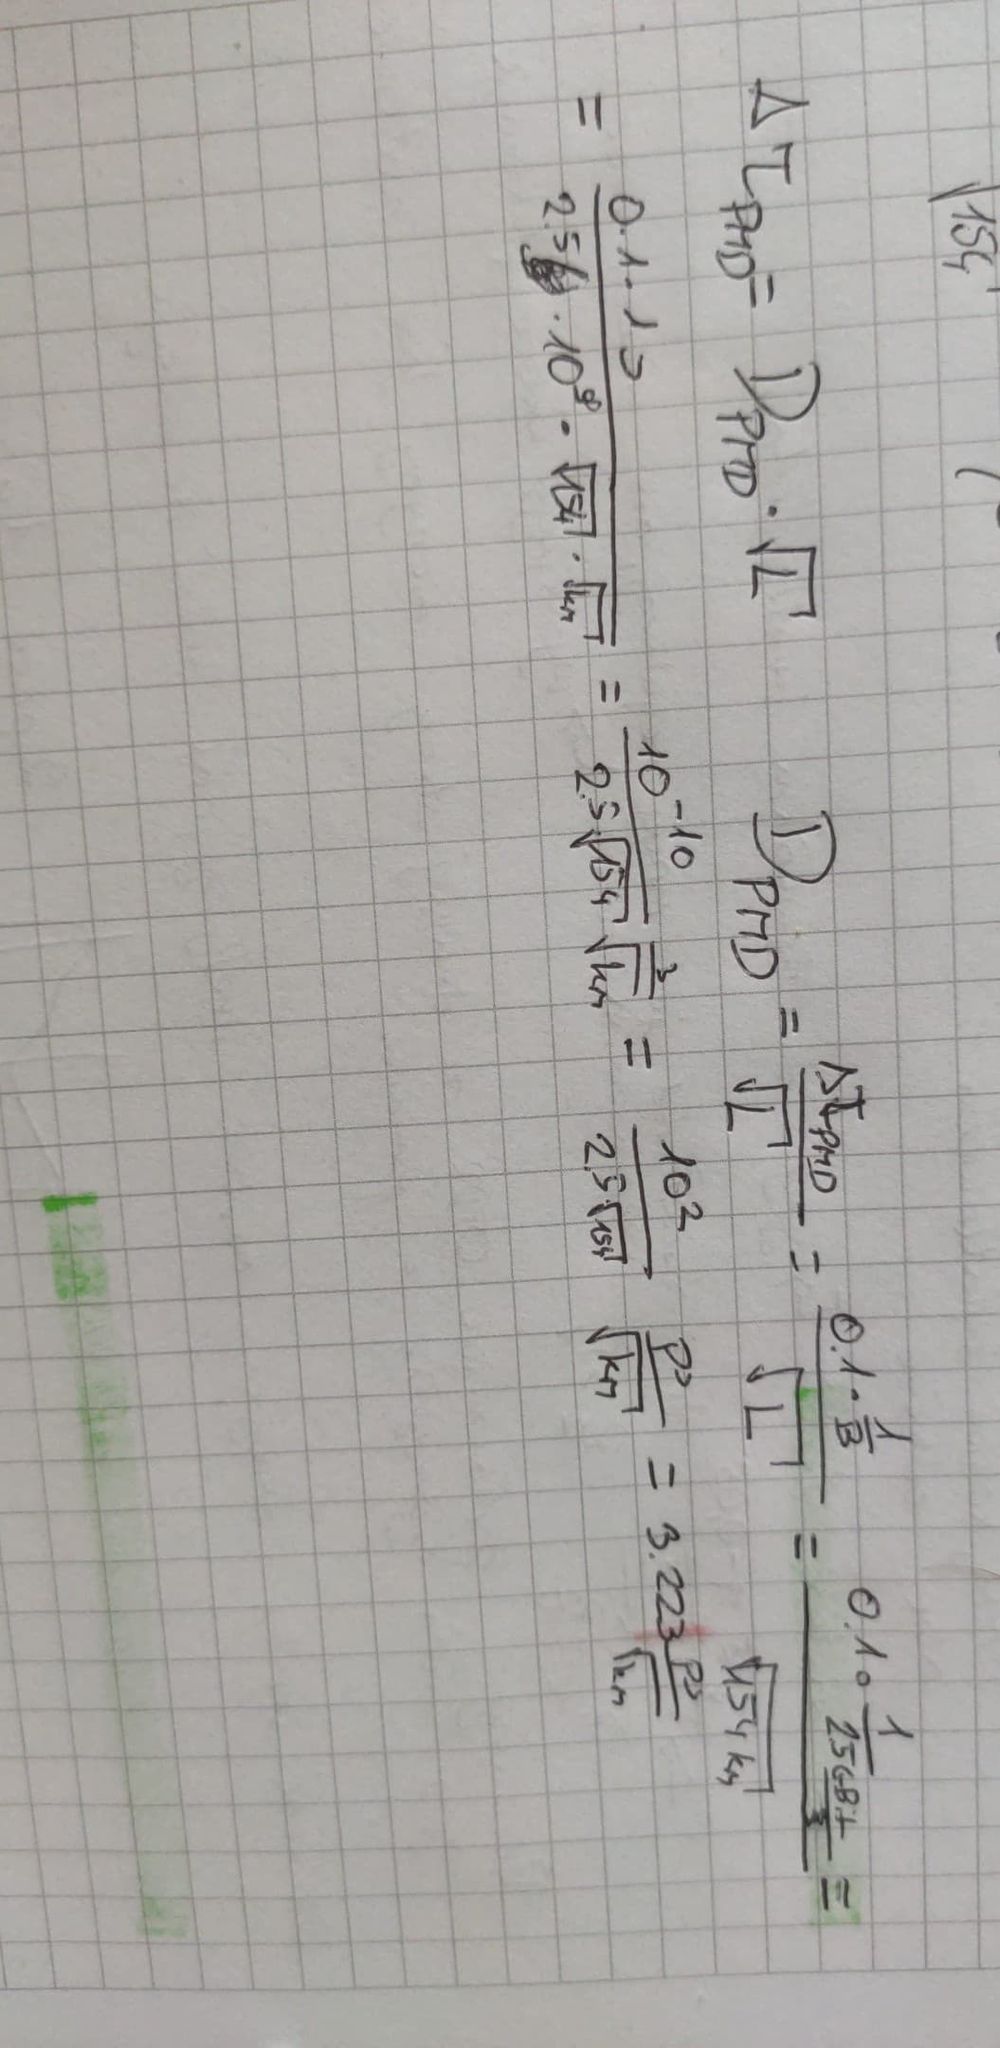 √154 (
Δτ_PMD = D_PMD · √L   D_PMD = Δτ_PMD / √L = 0.1 · 1/B / √L = 0.1 · 1/(2.5 GBit/s) / √154 km =
= 0.1 · 1 s / (2.5 · 10⁹ · √154 · √km) = 10⁻¹⁰ / (2.5 √154) s/√km = 10² / (2.5 √154) ps/√km = 3.223 ps/√km